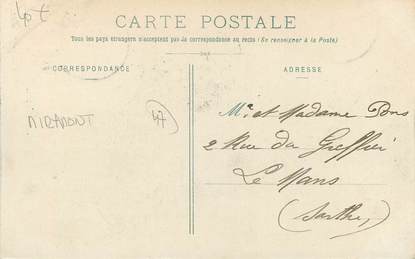 4pt
CARTE POSTALE
Tous les pays étrangers n'acceptent pas la correspondance au recto (Se renseigner à la Poste)
CORRESPONDANCE
ADRESSE
MIRAMONT
47
Mr. et Madame Pons
2 Rue du Greffier
Le Mans
(Sarthe)